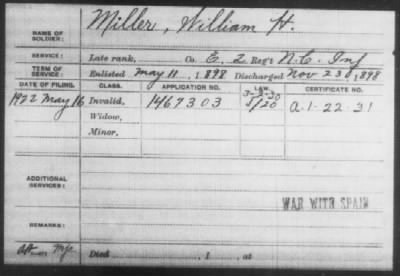 NAME OF SOLDIER: Miller, William H.
SERVICE: Late rank, Co. E, 2 Reg't N.C. Inf
TERM OF SERVICE: Enlisted May 11, 1898 Discharged Nov 23, 1898
DATE OF FILING. CLASS. APPLICATION NO. LAW. CERTIFICATE NO.
1922 May 16 Invalid, 1467303 5/20 A-1-22-31
Widow,
Minor,
ADDITIONAL SERVICES:
WAR WITH SPAIN
REMARKS:
Died , 1 , at